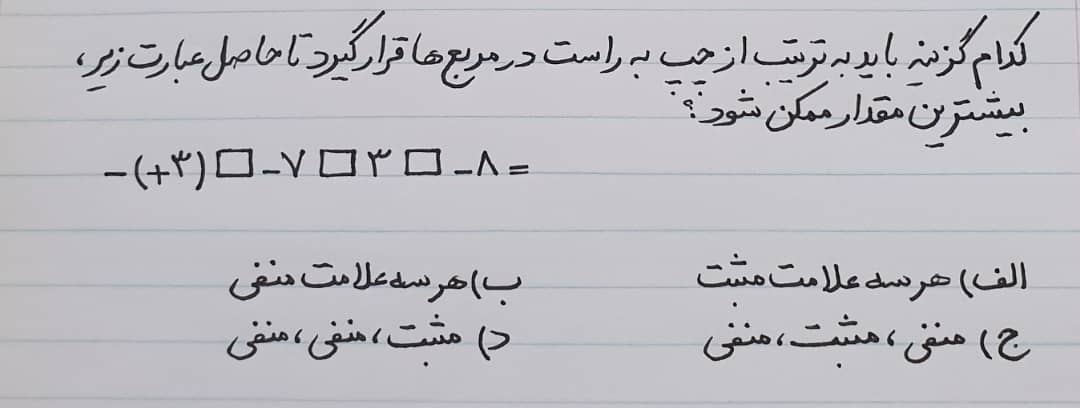 کدام گزینه باید به ترتیب از چپ به راست در مربع‌ها قرار گیرد تا حاصل عبارت زیر،
بیشترین مقدار ممکن شود؟
-(+۳) □ -۷ □ ۳ □ -۸ =
الف) هر سه علامت مثبت ب) هر سه علامت منفی
ج) منفی، مثبت، منفی د) مثبت، منفی، منفی